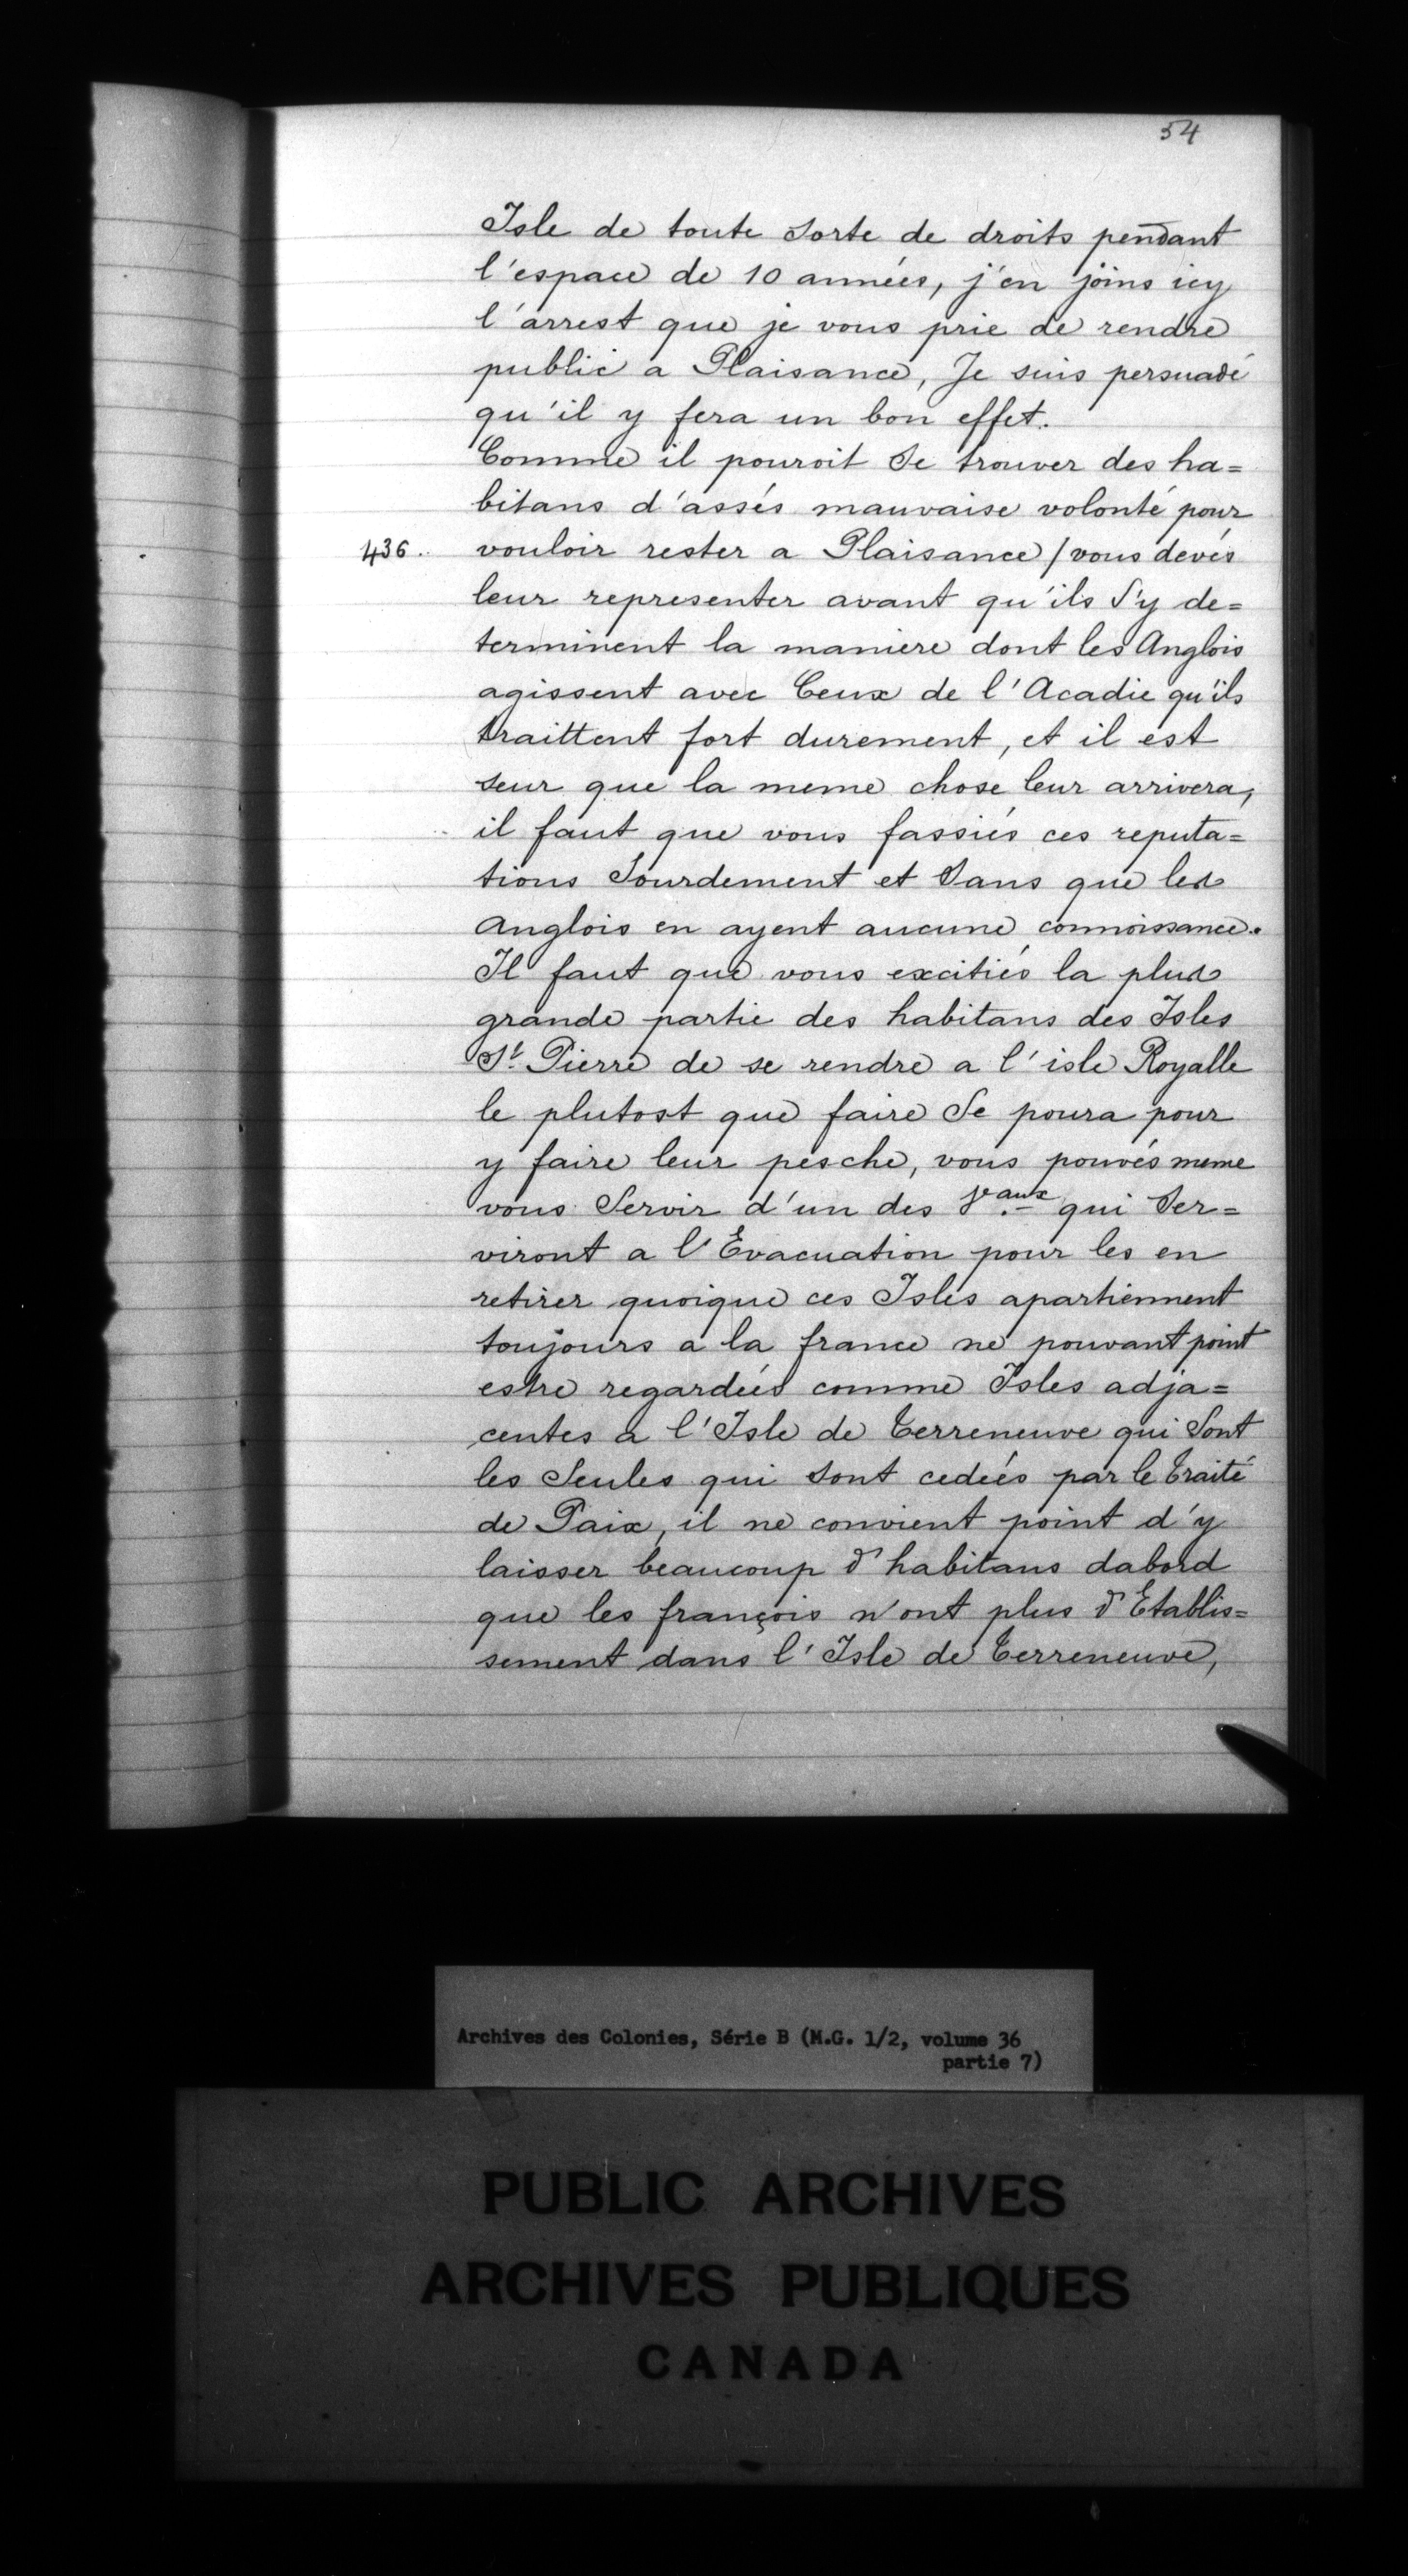 54
Isle de toute sorte de droits pendant
l'espace de 10 années, j'en joins icy
l'arrest que je vous prie de rendre
public a Plaisance, Je suis persuadé
qu'il y fera un bon effet.
Comme il pouroit se trouver des ha=
bitans d'assés mauvaise volonté pour
436. vouloir rester a Plaisance / vous devés
leur representer avant qu'ils s'y de=
terminent la maniere dont les Anglois
agissent avec Ceux de l'Acadie qu'ils
traittent fort durement, et il est
seur que la meme chose leur arrivera,
il faut que vous fassiés ces reputa=
tions sourdement et sans que les
anglois en ayent aucune connoissance.
Il faut que vous excitiés la plus
grande partie des habitans des Isles
St. Pierre de se rendre a l'isle Royalle
le plutost que faire se poura pour
y faire leur pesche, vous pouvés meme
vous servir d'un des Vaux qui ser=
viront a l'Evacuation pour les en
retirer quoique ces Isles apartiennent
toujours a la france ne pouvant point
estre regardées comme Isles adja=
centes a l'Isle de terreneuve qui sont
les seules qui sont cedées par le traité
de Paix, il ne convient point d'y
laisser beaucoup d'habitans dabord
que les françois n'ont plus d'Etablis=
sement dans l'Isle de terreneuve,
Archives des Colonies, Série B (M.G. 1/2, volume 36
partie 7)
PUBLIC ARCHIVES
ARCHIVES PUBLIQUES
CANADA